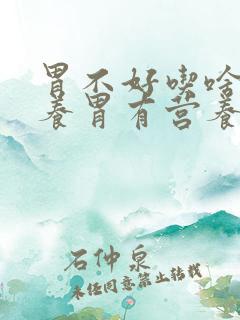 胃不好喫啥
養胃有营養
石仲泉
未经同意禁止转载